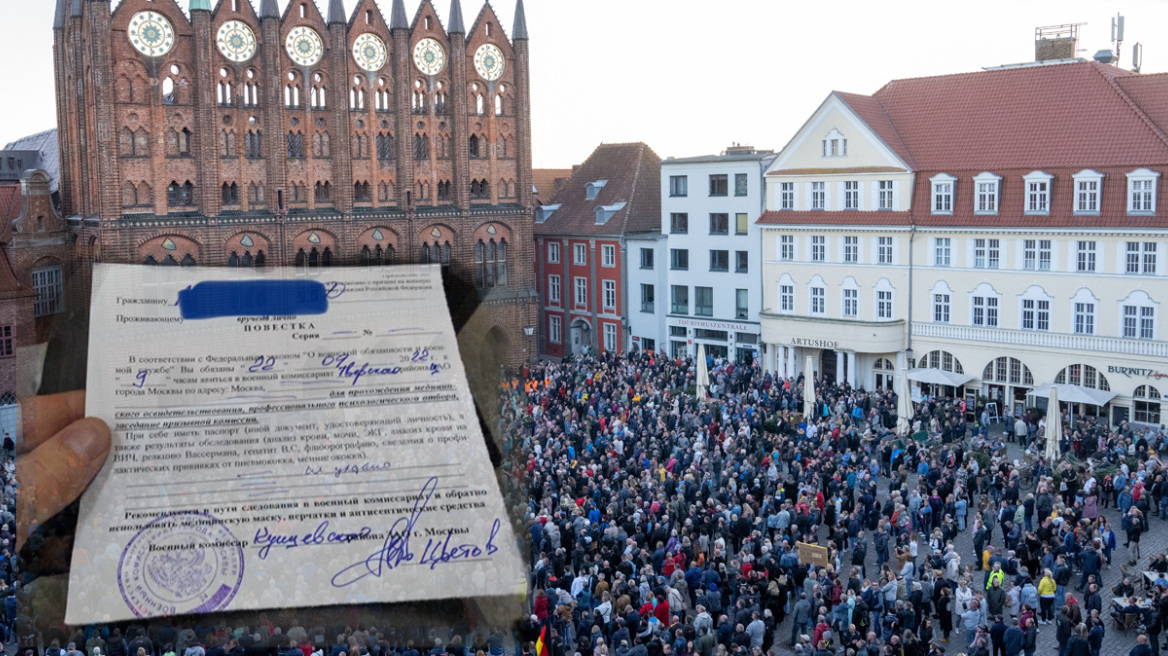 Гражданину
Российской Федерации
Проживающему
вручается лично
ПОВЕСТКА
Серия № 
В соответствии с Федеральным законом "О воинской обязанности и воен-
ной службе" Вы обязаны "22" 09 2022 г. к
"9" часам явиться в военный комиссариат Тверского района ЦАО
города Москвы по адресу: Москва,
для прохождения медицин-
ского освидетельствования, профессионального психологического отбора,
заседание призывной комиссии.
При себе иметь паспорт (иной документ, удостоверяющий личность), а
также результаты обследования (анализ крови, мочи, ЭКГ, анализ крови на
ВИЧ, реакцию Вассермана, гепатит В,С, флюорографию, сведения о профи
лактических прививках от пневмококка, менингококка).
Рекомендуется в пути следования в военный комиссариат и обратно
использовать медицинскую маску, перчатки и антисептические средства
Военный комиссар района ЦАО г. Москвы
ARTUSHOF
BURWITZ